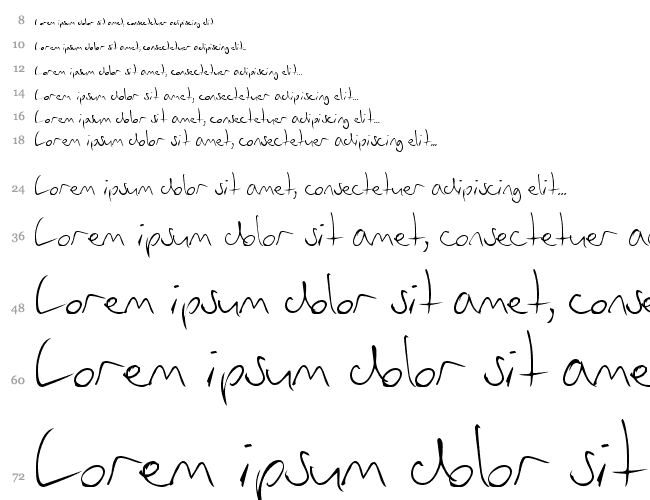 8 Lorem ipsum dolor sit amet, consectetuer adipiscing elit
10 Lorem ipsum dolor sit amet, consectetuer adipiscing elit..
12 Lorem ipsum dolor sit amet, consectetuer adipiscing elit...
14 Lorem ipsum dolor sit amet, consectetuer adipiscing elit...
16 Lorem ipsum dolor sit amet, consectetuer adipiscing elit...
18 Lorem ipsum dolor sit amet, consectetuer adipiscing elit...
24 Lorem ipsum dolor sit amet, consectetuer adipiscing elit...
36 Lorem ipsum dolor sit amet, consectetuer a
48 Lorem ipsum dolor sit amet, conse
60 Lorem ipsum dolor sit ame
72 Lorem ipsum dolor sit